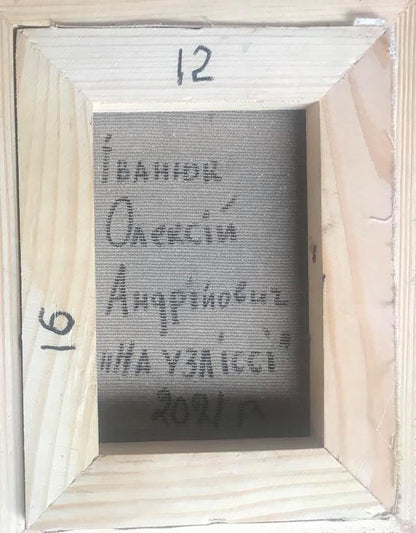 12
Іванюк
Олексій
Андрійович
"На узліссі"
2021 р
16